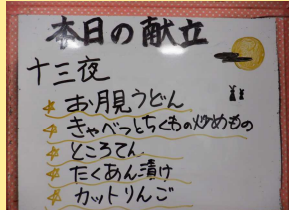 本日の献立
十三夜
お月見うどん
きゃべつとちくわの炒めもの
ところてん
たくあん漬け
カットりんご